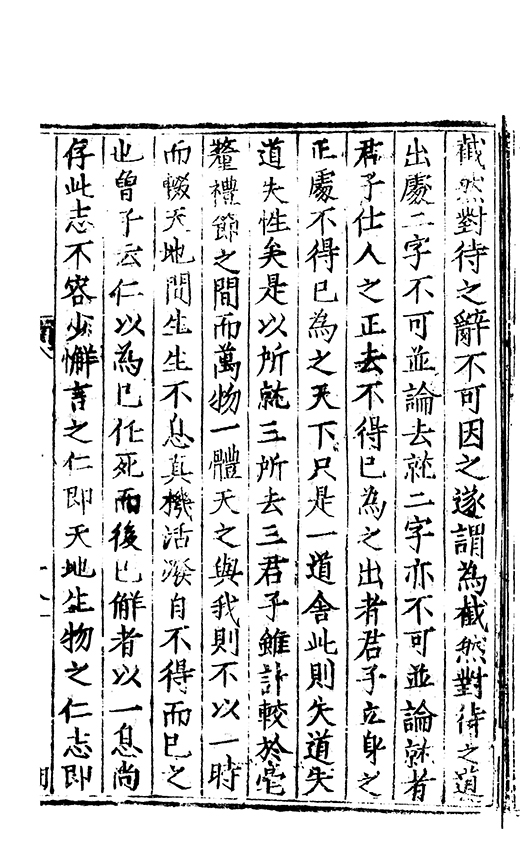 截然對待之辭不可因之遂謂為截然對待之道
出處二字不可並論去就二字亦不可並論就者
君子仕人之正去不得已為之出者君子立身之
正處不得已為之天下只是一道舍此則失道失
道失性矣是以所就三所去三君子雖計較於毫
釐禮節之間而萬物一體天之與我則不以一時
而輟天地間生生不息真機活潑自不得而已之
也曾子云仁以為己任死而後已解者以一息尚
存此志不容少懈言之仁即天地生物之仁志即